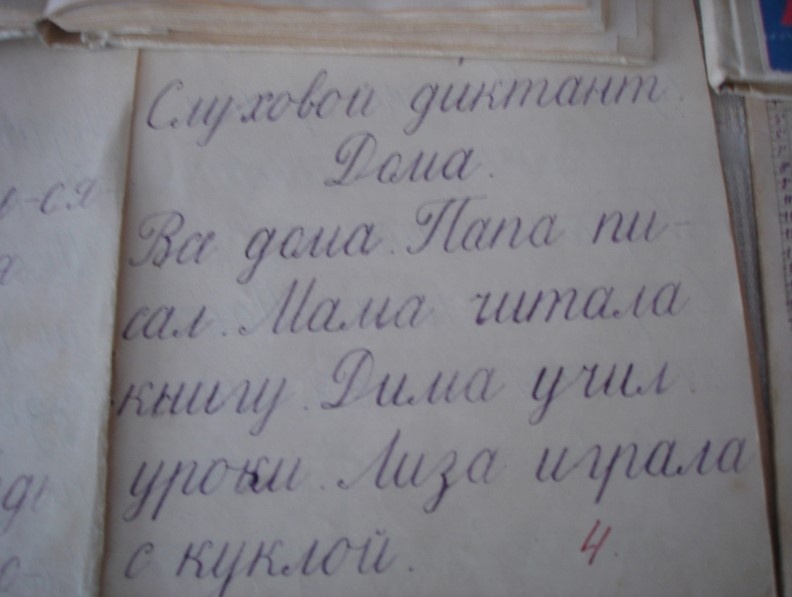 Слуховой диктант.
Дома.
Все дома. Папа пи-
сал. Мама читала
книгу. Дима учил
уроки. Лиза играла
с куклой. 4.
-ся-